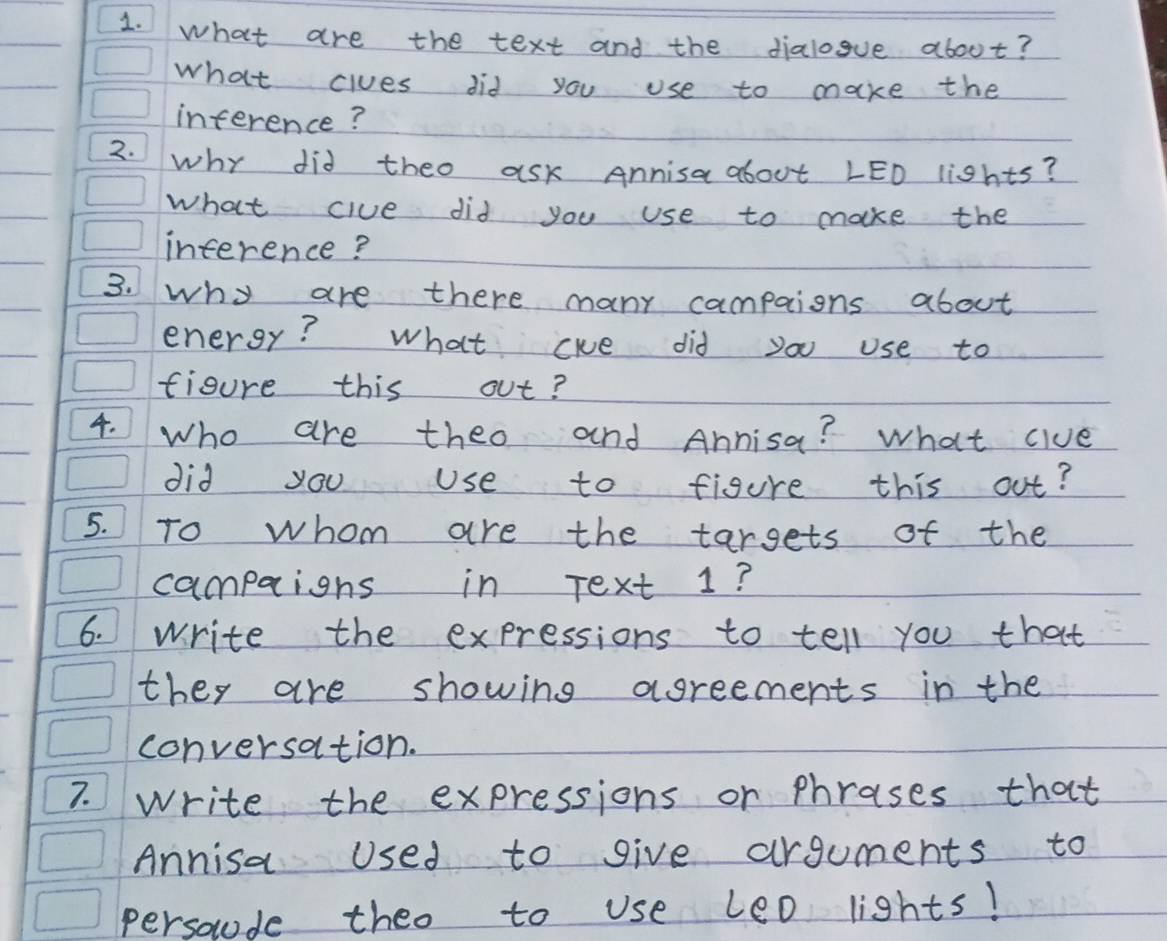 1. What are the text and the dialogue about?
What clues did you use to make the
inference?
2. Why did theo ask Annisa about LED lights?
What clue did you use to make the
inference?
3. Why are there many campaigns about
energy? What clue did you use to
figure this out?
4. Who are theo and Annisa? What clue
did you use to figure this out?
5. To whom are the targets of the
campaigns in Text 1?
6. Write the expressions to tell you that
they are showing agreements in the
conversation.
7. Write the expressions or Phrases that
Annisa Used to give arguments to
persaude theo to use LED lights!